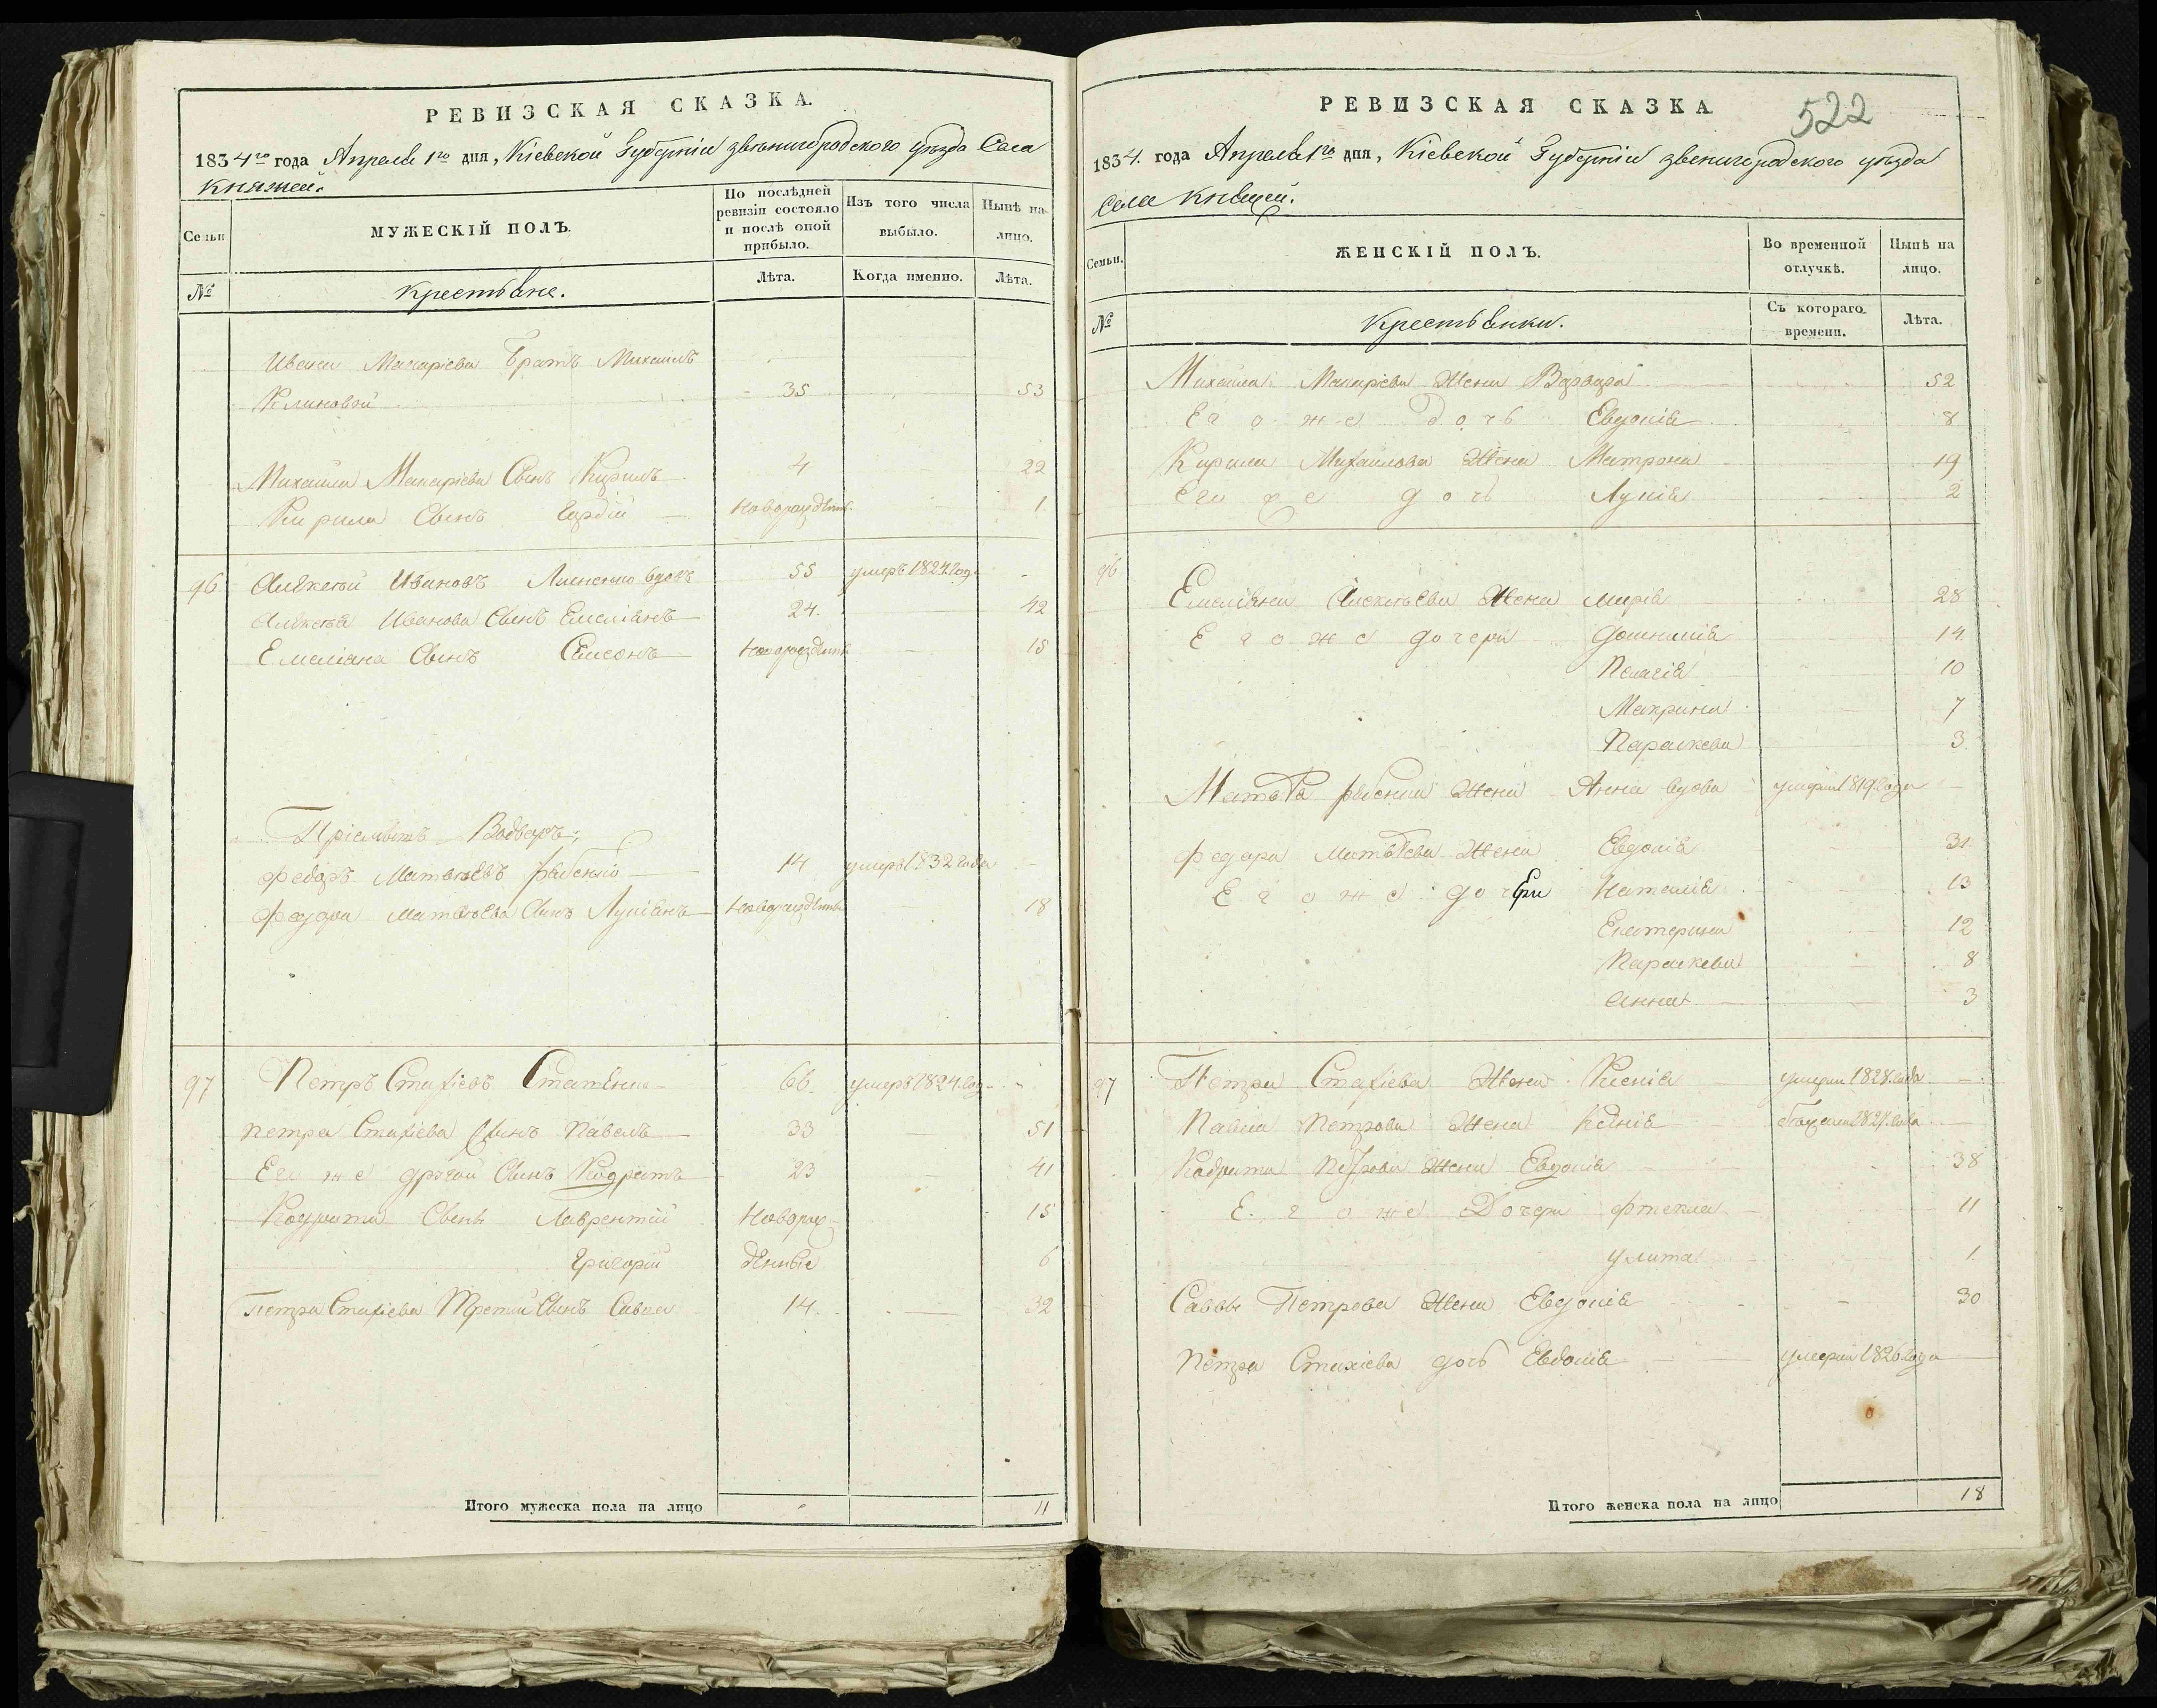 РЕВИЗСКАЯ СКАЗКА.
1834го года Апреля 1го дня, Кіевской Губерніи звенигородского уезда Села
Княжей.
Семьи
МУЖЕСКІЙ ПОЛЪ.
По послѣдней ревизіи состояло и послѣ оной прибыло.
Изъ того числа выбыло.
Нынѣ на-лицо.
№
Крестьяне.
Лѣта.
Когда именно.
Лѣта.
Ивана Макаріева Братъ Михаилъ
35 53
Михайла Макаріева Сынъ Кирилъ 4 22
Кирила Сынъ 1
96 Ивановъ 55 умеръ 1824 года
Иванова Сынъ Емеліянъ 24. 42
Емеліяна Сынъ Самсонъ 15
Федоръ Матвѣевъ 14 умеръ 1832 года
Матвѣева Сынъ Лукіянъ 18
97 Петръ Стахіевъ 66 умеръ 1824 год
Петра Стахіева Сынъ Павелъ 33 51
Его же другой Сынъ Кодратъ 23 41
Кодрата Сынъ Лаврентій Новорож- 15
Григорій дѣнные 6
Петра Стахіева Третій Сынъ Савва 14. 32
Итого мужеска пола на лицо 11
РЕВИЗСКАЯ СКАЗКА
522
1834. года Апреля 1го дня, Кіевской Губерніи звенигородского уезда
Села
Семьи.
ЖЕНСКІЙ ПОЛЪ.
Во временной отлучкѣ.
Нынѣ на лицо.
№
Крестьянки.
Съ котораго времени.
Лѣта.
Михайла Макаріева Жена Варвара 52
Его же дочь Евдокія 8
Кирила Михайлова Жена Матрона 19
Его же дочь 2
96
Емеліяна Алексѣева Жена Марія 28
Его же дочери 14
Пелагія 10
Макрина 7
Параскева 3
Жена Анна вдова умерла 1819 года
Федора Матвѣева Жена Евдокія 31
Его же дочери Наталія 13
Екатерина 12
Параскева 8
Анна 3
97 Петра Стахіева Жена Ксенія умерла 1828 года
Павла Петрова Жена
Кодрата Петрова Жена Евдокія 38
Его же Дочери 11
Улита 1
Саввы Петрова Жена Евдокія 30
Петра Стахіева дочь Евдокія умерла 1826 года
Итого женска пола на лицо 18